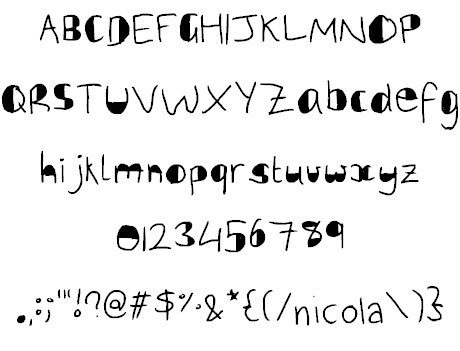 ABCDEFGHIJKLMNOP
QRSTUVWXYZabcdefg
hijklmnopqrstuvwxyz
0123456789
.,:;'"!?@#$%&*{(/nicola\)}